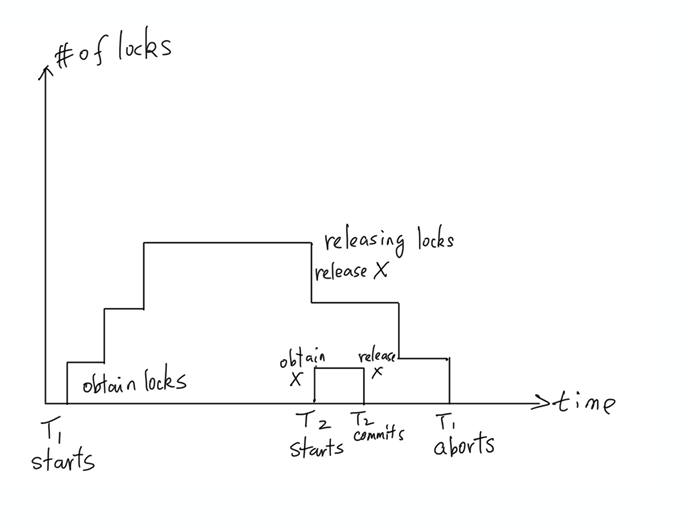 # of locks
releasing locks
release X
obtain
X
release
X
obtain locks
time
T1
starts
T2
starts
T2
commits
T1
aborts